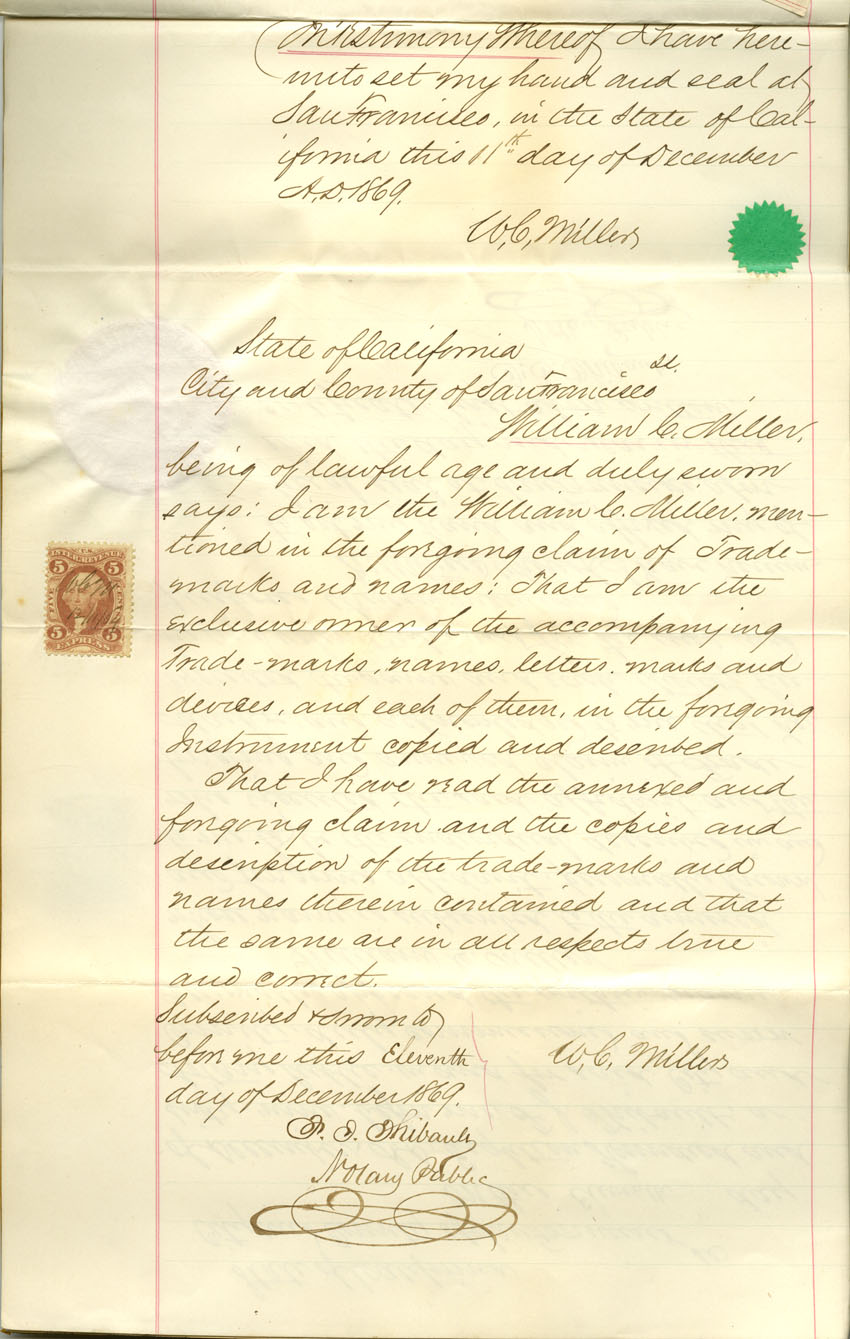 In Testimony Whereof I have here-
unto set my hand and seal at
San Francisco, in the State of Cal-
ifornia this 11th day of December
A.D. 1869.
W. C. Miller
State of California
City and County of San Francisco ss.
William C. Miller,
being of lawful age and duly sworn
says: I am the William C. Miller, men-
tioned in the foregoing claim of Trade-
marks and names: That I am the
exclusive owner of the accompanying
Trade-marks, names, letters, marks and
devices, and each of them, in the foregoing
Instrument copied and described.
That I have read the annexed and
foregoing claim and the copies and
description of the trade-marks and
names therein contained and that
the same are in all respects true
and correct.
Subscribed & sworn to
before me this Eleventh
day of December 1869.
W. C. Miller
F. J. Thibault
Notary Public
U.S.
INTER. REVENUE
5 5
FIVE CENTS
5 5
EXPRESS